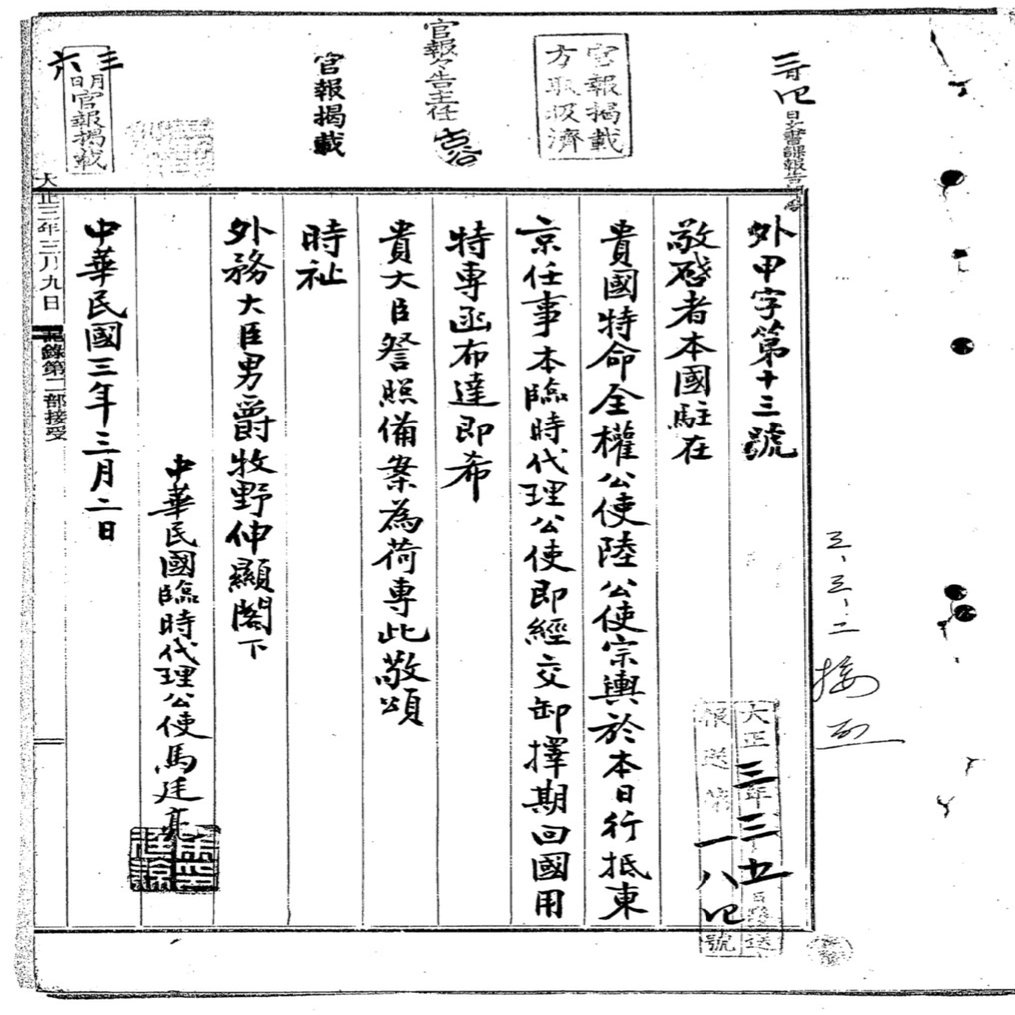 外甲字第十三號
敬啓者本國駐在
貴國特命全權公使陸公使宗輿於本日行抵東
京任事本臨時代理公使即經交卸擇期回國用
特專函布達即希
貴大臣詧照備案為荷專此敬頌
時祉
外務大臣男爵牧野伸顯閣下
中華民國臨時代理公使馬廷亮
中華民國三年三月二日
三月四日文書課報告
官報掲載
方取扱濟
官報報告主任
古谷
官報掲載
三月
六日
官報掲載
大正三年三月九日
記錄第二部接受
三、三、二
接
大正三年三五日發送
報送第一八四號